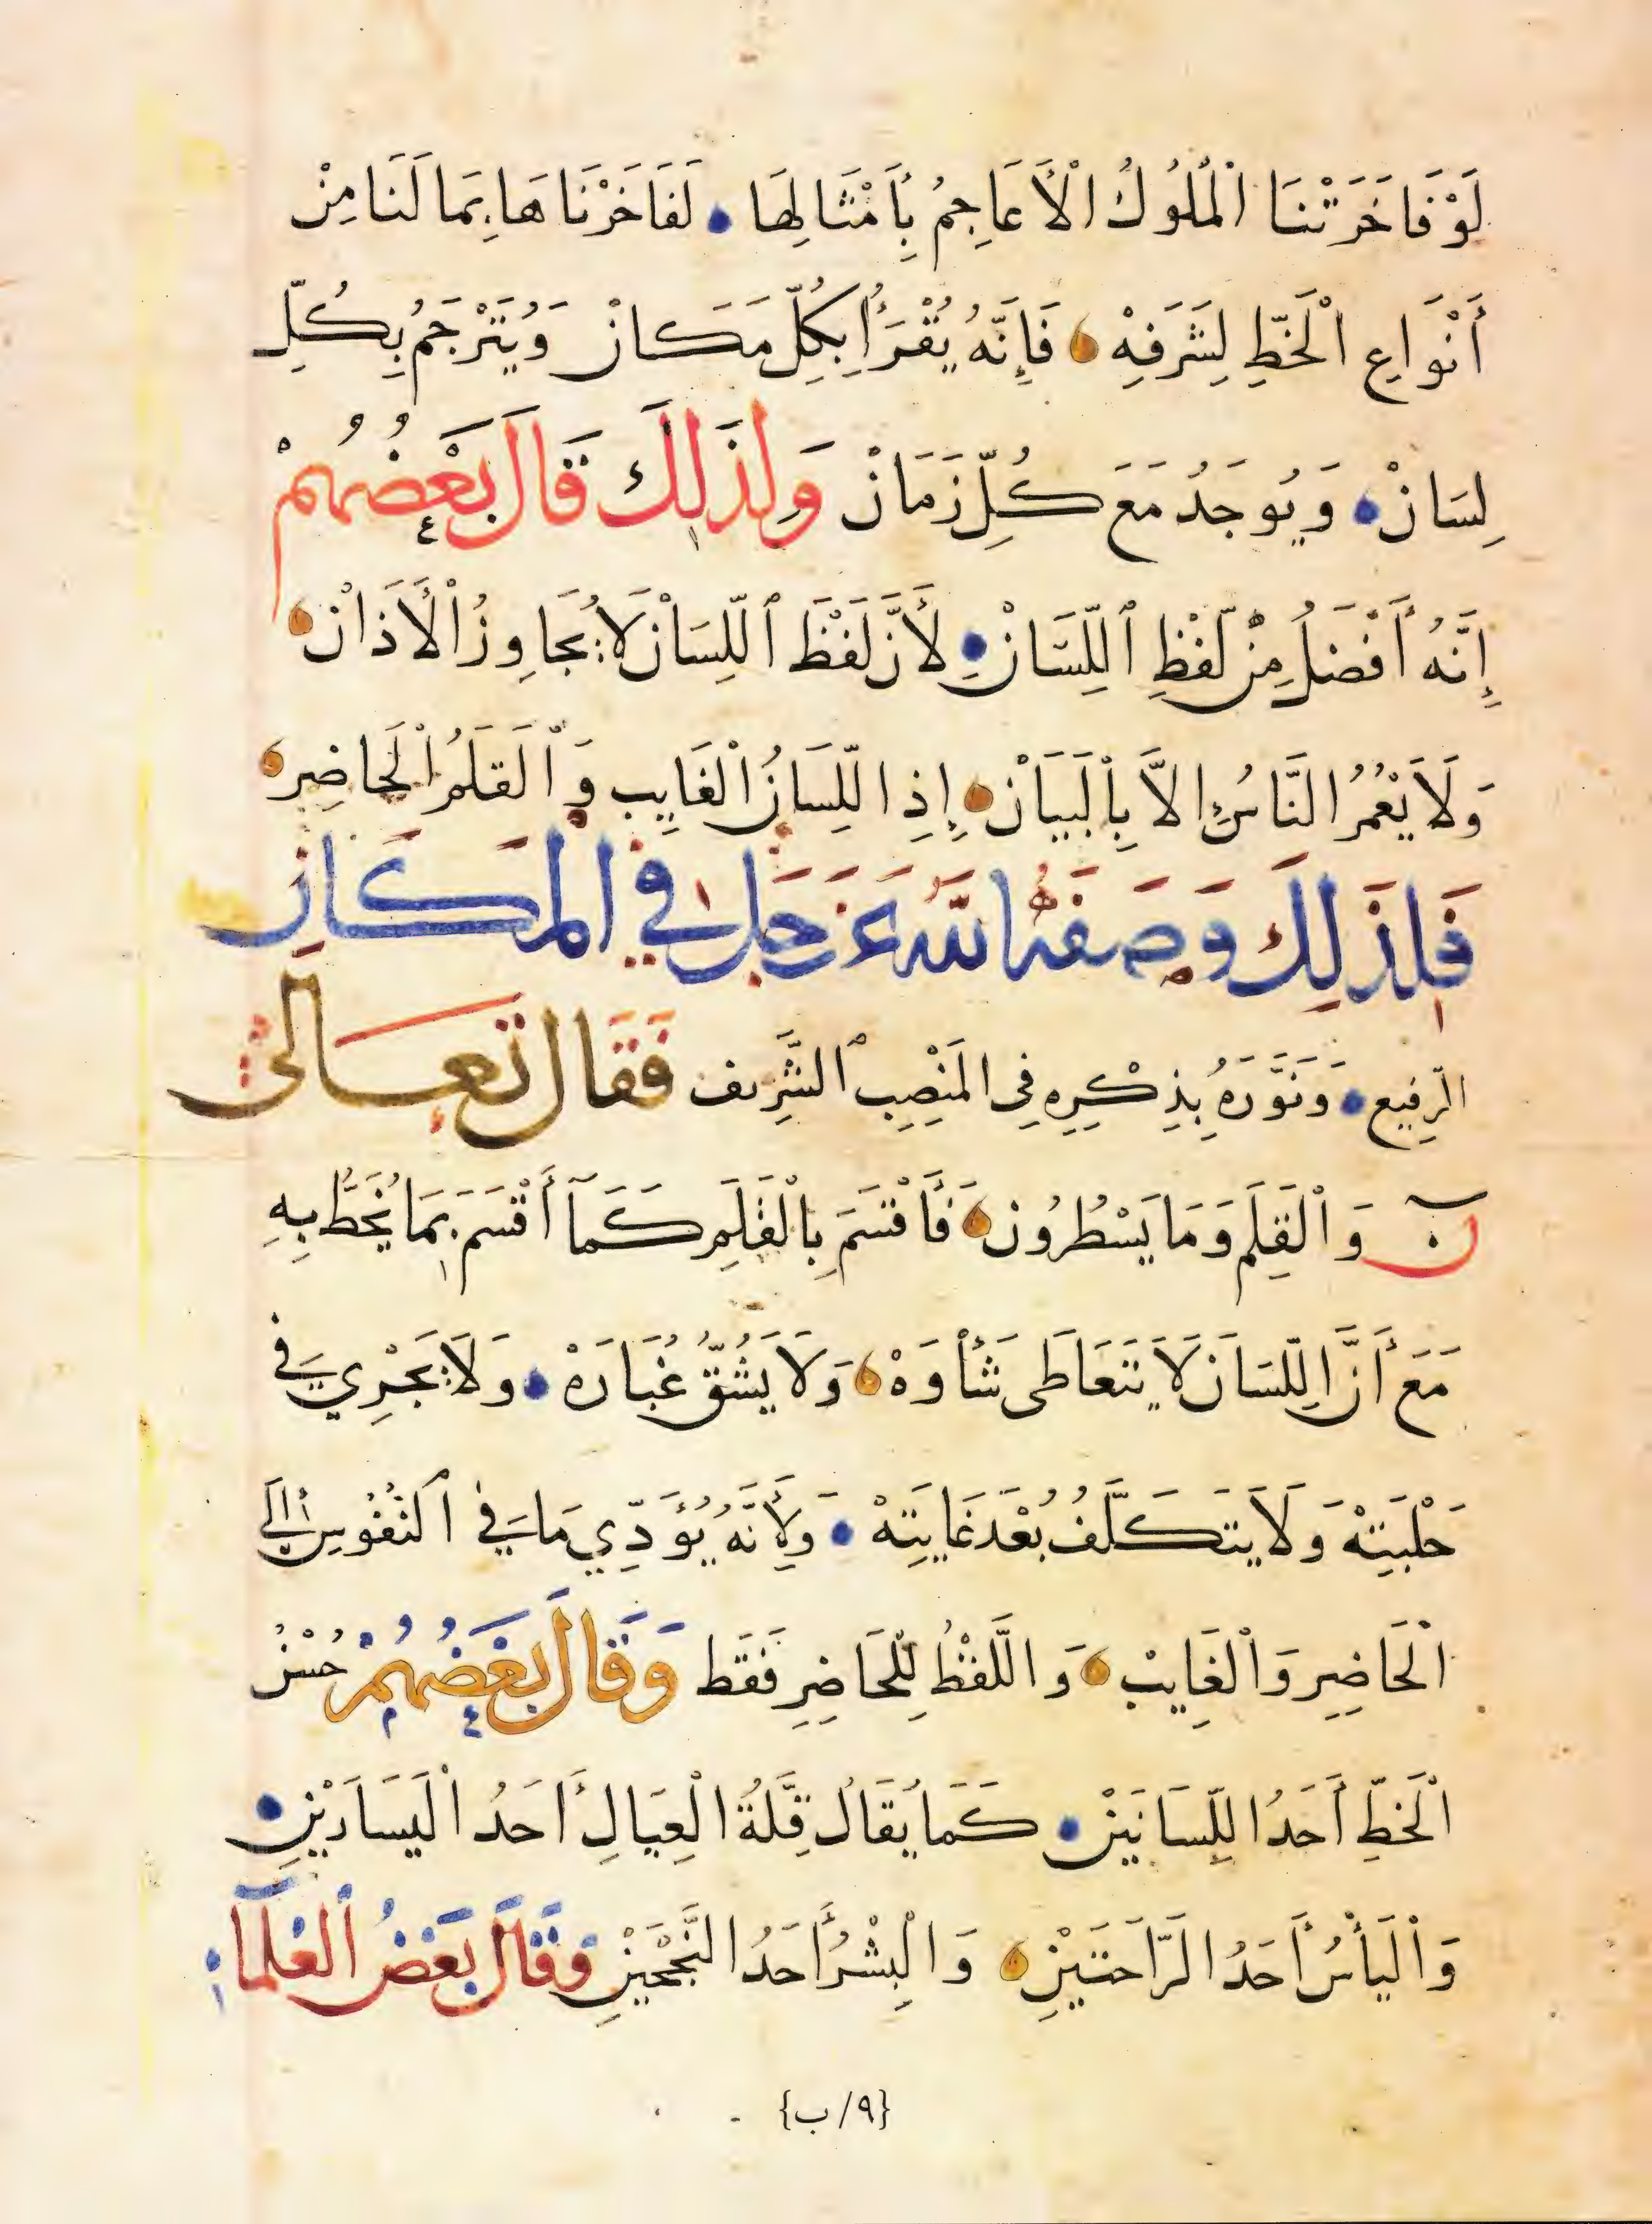 لَوْ فَاخَرَتْنَا الْمُلُوكُ الْأَعَاجِمُ بِأَمْثَالِهَا لَفَاخَرْنَاهَا بِمَا لَنَا مِنْ
أَنْوَاعِ الْخَطِّ لِشَرَفِهْ فَإِنَّهُ يُقْرَأُ بِكُلِّ مَكَانْ وَيُتَرْجَمُ بِكُلِّ
لِسَانْ وَيُوجَدُ مَعَ كُلِّ زَمَانْ وَلِذَلِكَ قَالَ بَعْضُهُمْ
إِنَّهُ أَفْضَلُ مِنْ لَفْظِ ٱللِّسَانْ لِأَنَّ لَفْظَ ٱللِّسَانْ لَا يُجَاوِزُ الْأَذَانْ
وَلَا يَعُمُّ النَّاسُ إِلَّا بِالْبَيَانْ إِذِ اللِّسَانُ الْغَايِب وَٱلْقَلَمُ الْحَاضِر
فَلِذَلِكَ وَصَفَهُ اللهُ عَزَّ وَجَلَّ فِي الْمَكَانِ
الرَّفِيعِ وَنَوَّرَهُ بِذِكْرِهِ فِي الْمَنْصِبِ ٱلشَّرِيف فَقَالَ تَعَالَىٰ
نۤ وَالْقَلَمِ وَمَا يَسْطُرُون فَأَقْسَمَ بِالْقَلَمِ كَمَا أَقْسَمَ بِمَا يُخَطُّ بِهِ
مَعَ أَنَّ اللِّسَانَ لَا يَتَعَاطَى شَأْوَهْ وَلَا يَشُقُّ غُبَارَهْ وَلَا يَجْرِي فِي
حَلْبَتِهْ وَلَا يَتَكَلَّفُ بُعْدَ غَايَتِهْ وَلِأَنَّهُ يُؤَدِّي مَا فِي ٱلنُّفُوسِ إِلَى
الْحَاضِرِ وَالْغَايِبْ وَاللَّفْظُ لِلْحَاضِرِ فَقَط وَقَالَ بَعْضُهُمْ حُسْنُ
الْخَطِّ أَحَدُ اللِّسَانَيْنْ كَمَا يُقَالُ قِلَّةُ الْعِيَالِ أَحَدُ الْيَسَارَيْنِ
وَالْيَأْسُ أَحَدُ الرَّاحَتَيْنِ وَالْبِشْرُ أَحَدُ النَّجْحَيْنِ وَقَالَ بَعْضُ ٱلْعُلَمَآءِ
{٩/ب}